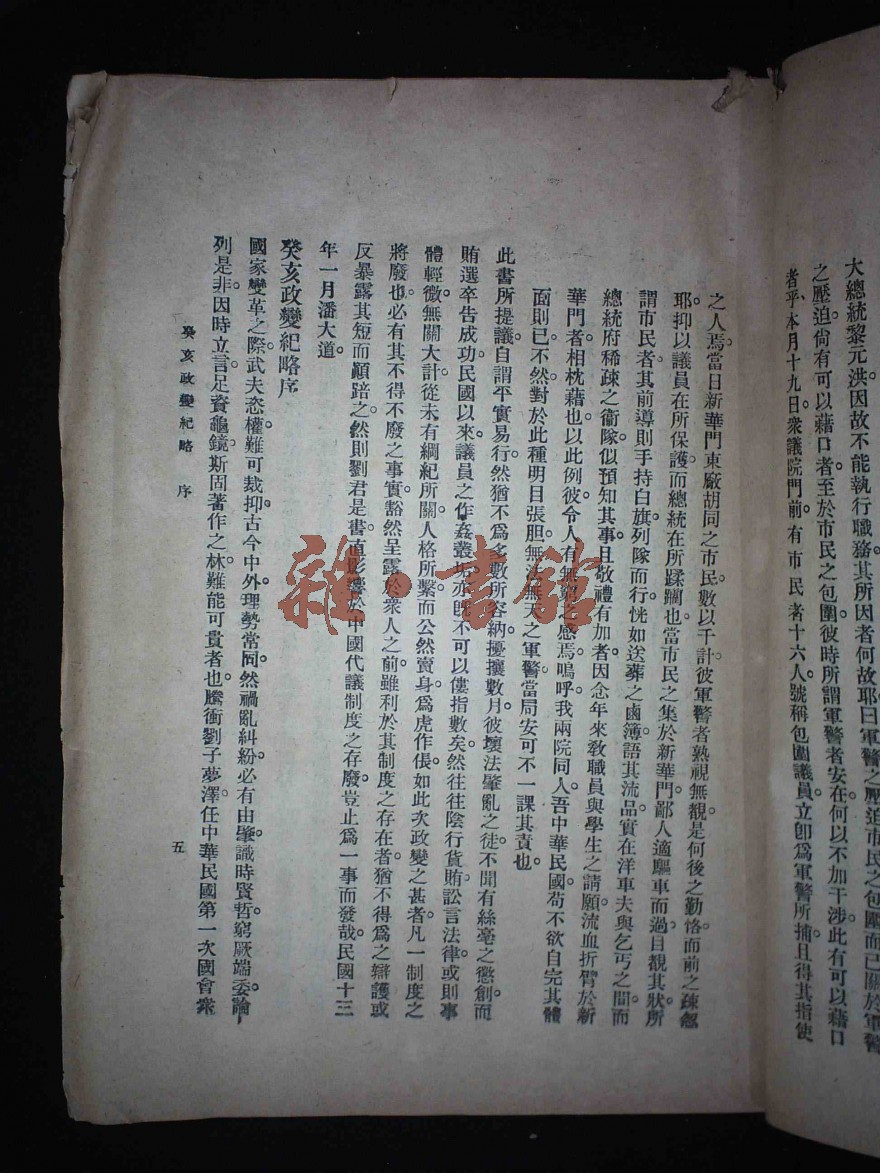 大總統黎元洪因故不能執行職務。其所因者何故耶。曰軍警之壓迫市民之包圍而已。關於軍警
之壓迫。尙有可以藉口者。至於市民之包圍。彼時所謂軍警者安在。何以不加干涉。此有可以藉口
者乎。本月十九日。衆議院門前。有市民者十六人。號稱包圍議員。立卽爲軍警所捕。且得其指使
之人焉。當日新華門東廠胡同之市民。數以千計。彼軍警者熟視無覩。是何後之勤恪。而前之疎忽
耶。抑以議員在所保護。而總統在所蹂躪也。當市民之集於新華門。鄙人適驅車而過。目覩其狀。所
謂市民者。其前導則手持白旗。列隊而行。恍如送葬之鹵簿。語其流品。實在洋車夫與乞丐之間。而
總統府稀疎之衞隊。似預知其事。且敬禮有加者。因念年來敎職員與學生之請願。流血折臂於新
華門者相枕藉也。以此例彼。令人有無窮之感焉。嗚呼。我兩院同人。吾中華民國。苟不欲自完其體
面則已。不然。對於此種明目張胆。無法無天之軍警當局。安可不一課其責也。
此書所提議。自謂平實易行。然猶不爲多數所容納。擾攘數月。彼壞法肇亂之徒。不聞有絲毫之懲創。而
賄選卒告成功。民國以來。議員之作姦叢垢。亦旣不可以僂指數矣。然往往陰行貨賄。訟言法律。或則事
體輕微。無關大計。從未有綱紀所關。人格所繫。而公然賣身。爲虎作倀。如此次政變之甚者。凡一制度之
將廢也。必有其不得不廢之事實。豁然呈露於衆人之前。雖利於其制度之存在者。猶不得爲之辯護。或
反暴露其短而顚踣之。然則劉君是書。直影響於中國代議制度之存廢。豈止爲一事而發哉。民國十三
年一月潘大道。
癸亥政變紀略序
國家變革之際。武夫恣權。難可裁抑。古今中外。理勢常同。然禍亂糾紛。必有由肇。識時賢哲。窮厥端委。論
列是非。因時立言。足資龜鏡。斯固著作之林。難能可貴者也。騰衝劉子夢澤。任中華民國第一次國會衆
癸亥政變紀略 序
五
雜·書館